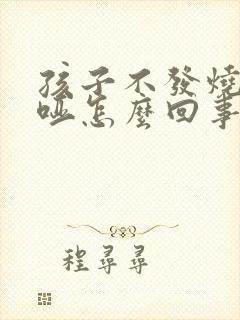 孩子不發燒
啞怎麼回事
程尋尋